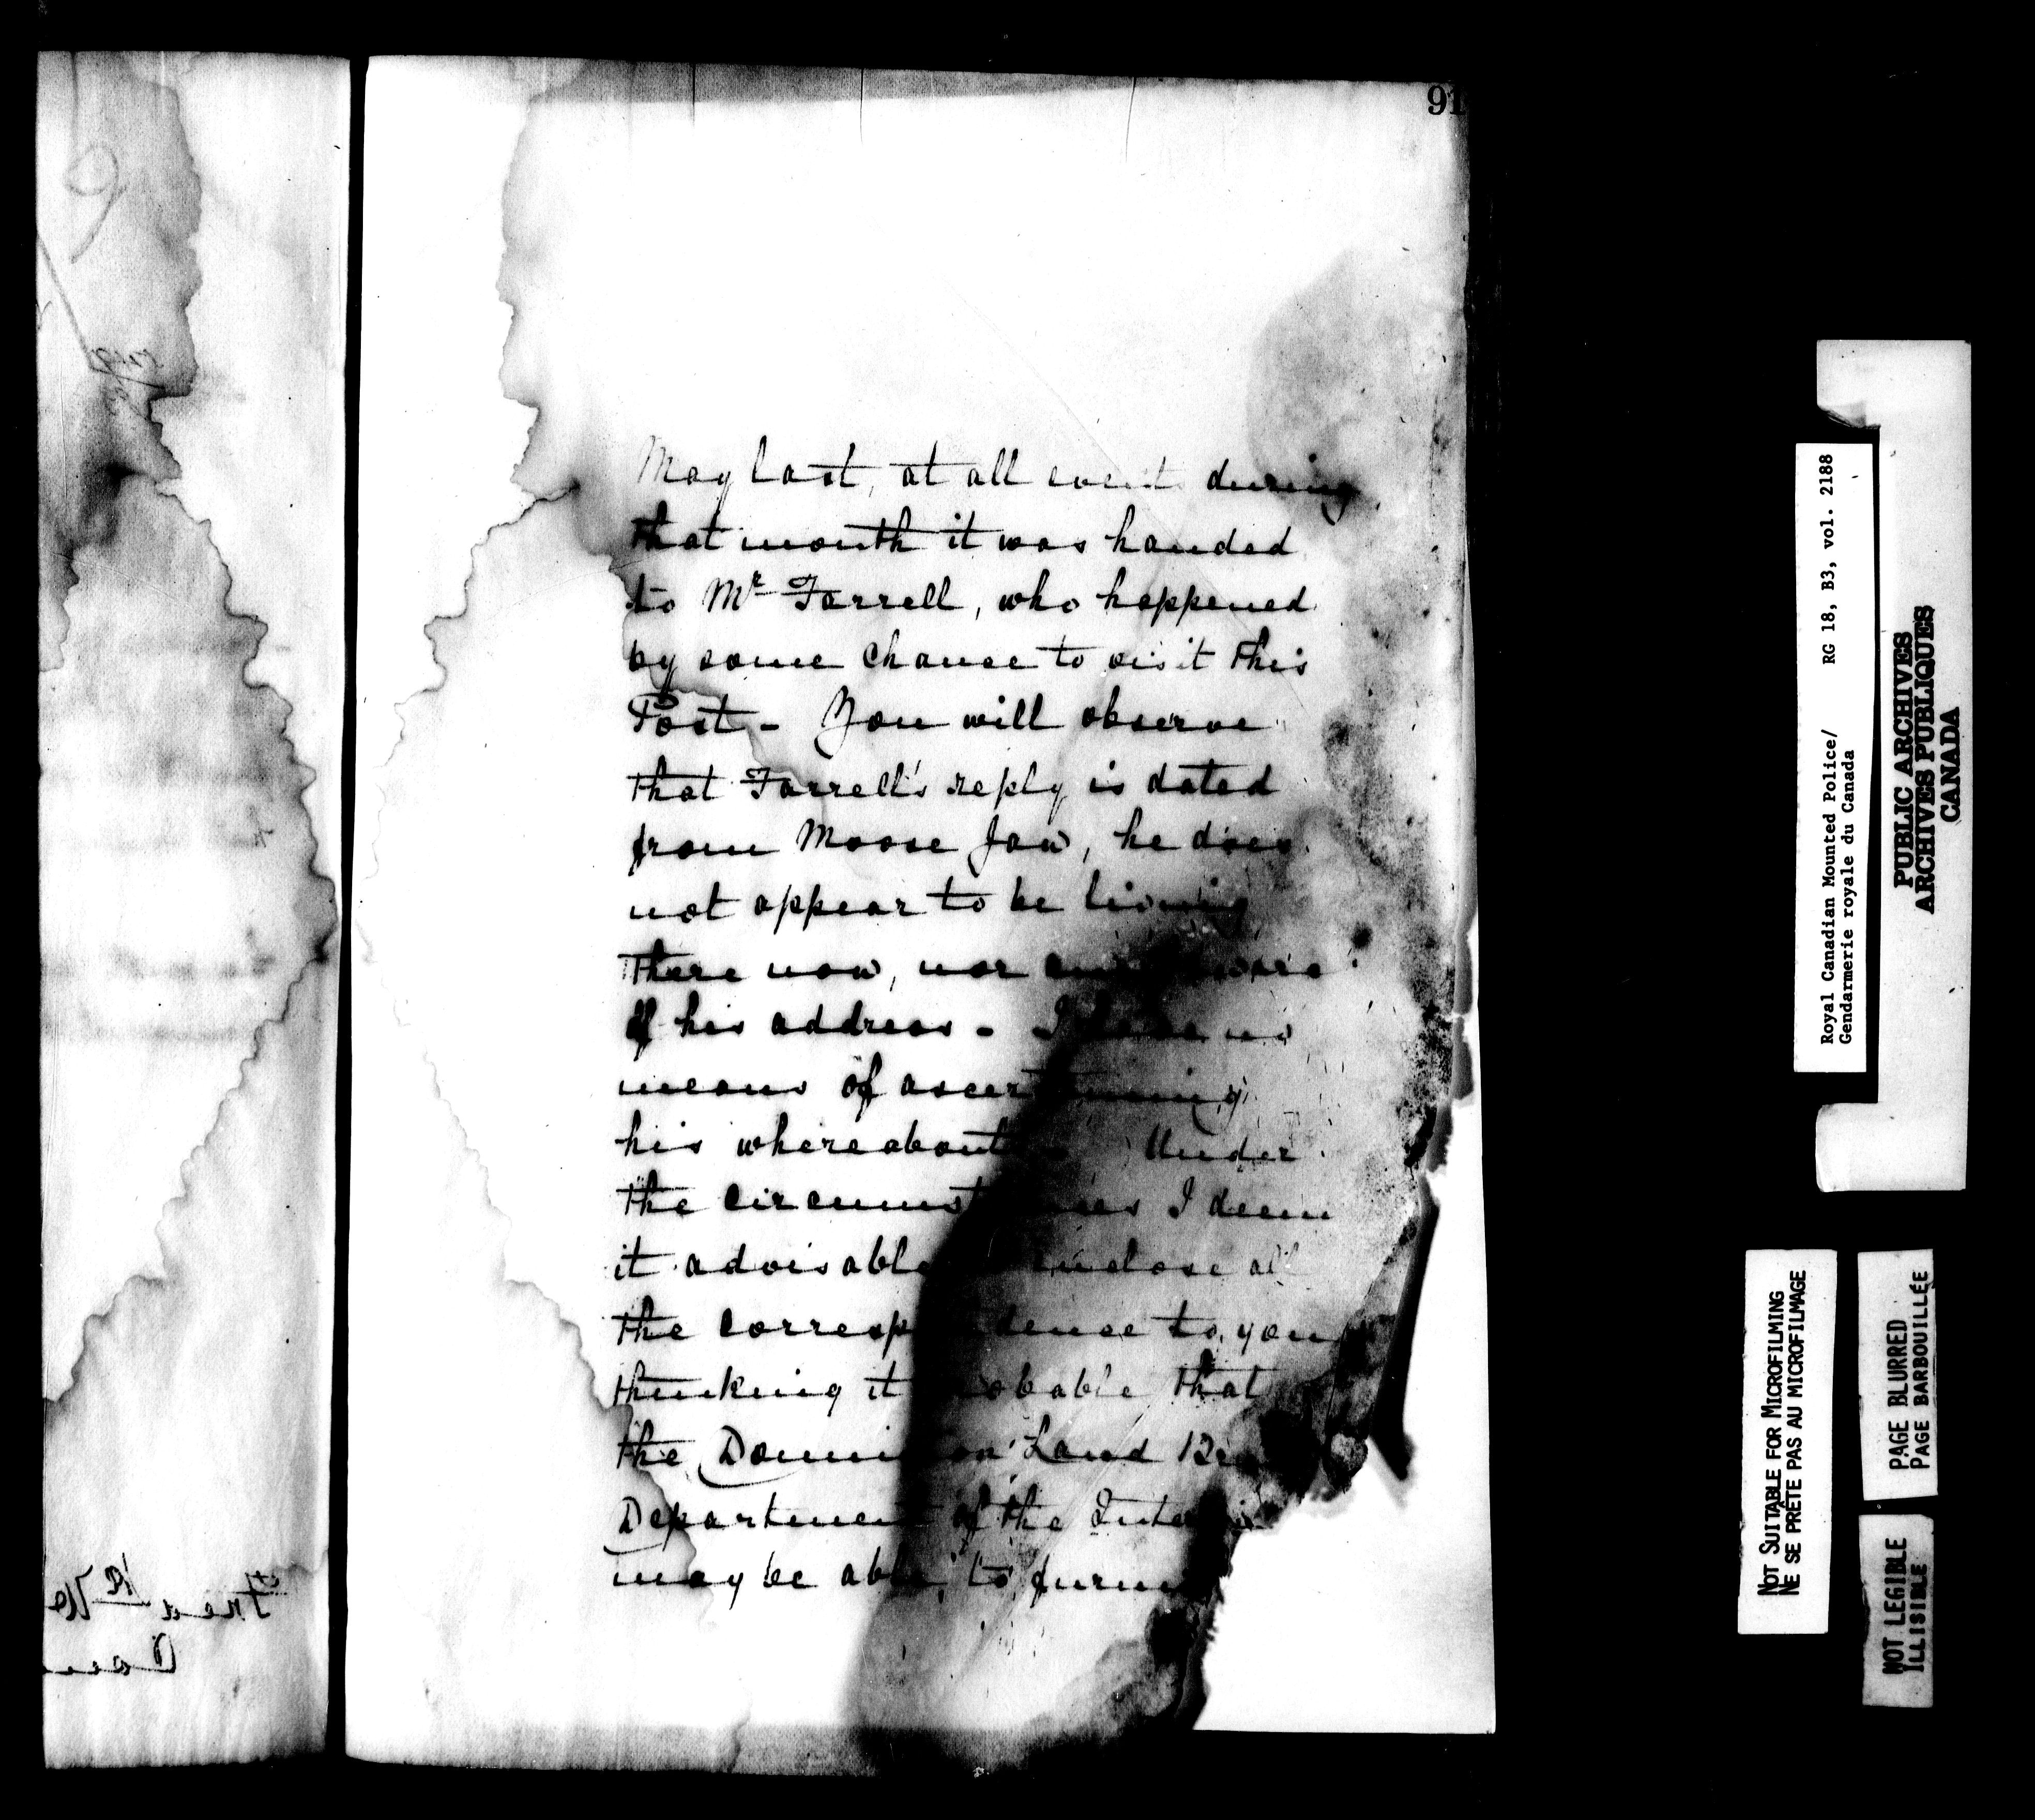 91
May last, at all events during
that month it was handed
to Mr Farrell, who happened
by some chance to visit this
Post - You will observe
that Farrell's reply is dated
from Moose Jaw, he does
not appear to be living
there now, nor am I aware
of his address - I have no
means of ascertaining
his whereabouts - Under
the circumstances I deem
it advisable to enclose all
the correspondence to you
thinking it probable that
the Dominion Land
Department of the Interior
may be able to
Fred
Royal Canadian Mounted Police/ RG 18, B3, vol. 2188
Gendarmerie royale du Canada
PUBLIC ARCHIVES
ARCHIVES PUBLIQUES
CANADA
NOT SUITABLE FOR MICROFILMING
NE SE PRÊTE PAS AU MICROFILMAGE
PAGE BLURRED
PAGE BARBOUILLÉE
NOT LEGIBLE
ILLISIBLE